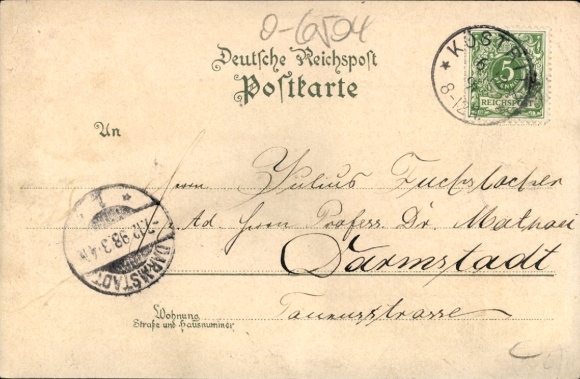 0-6504
Deutsche Reichspost
Postkarte
KÜSTRIN
8-12
5
REICHSPOST
An
Herrn Julius Fuchslocher
Ad. Herrn Profess. Dr. Mathaei
Darmstadt
Taunusstrasse
1.12.98.3-4
DARMSTADT
Wohnung
Straße und Hausnummer